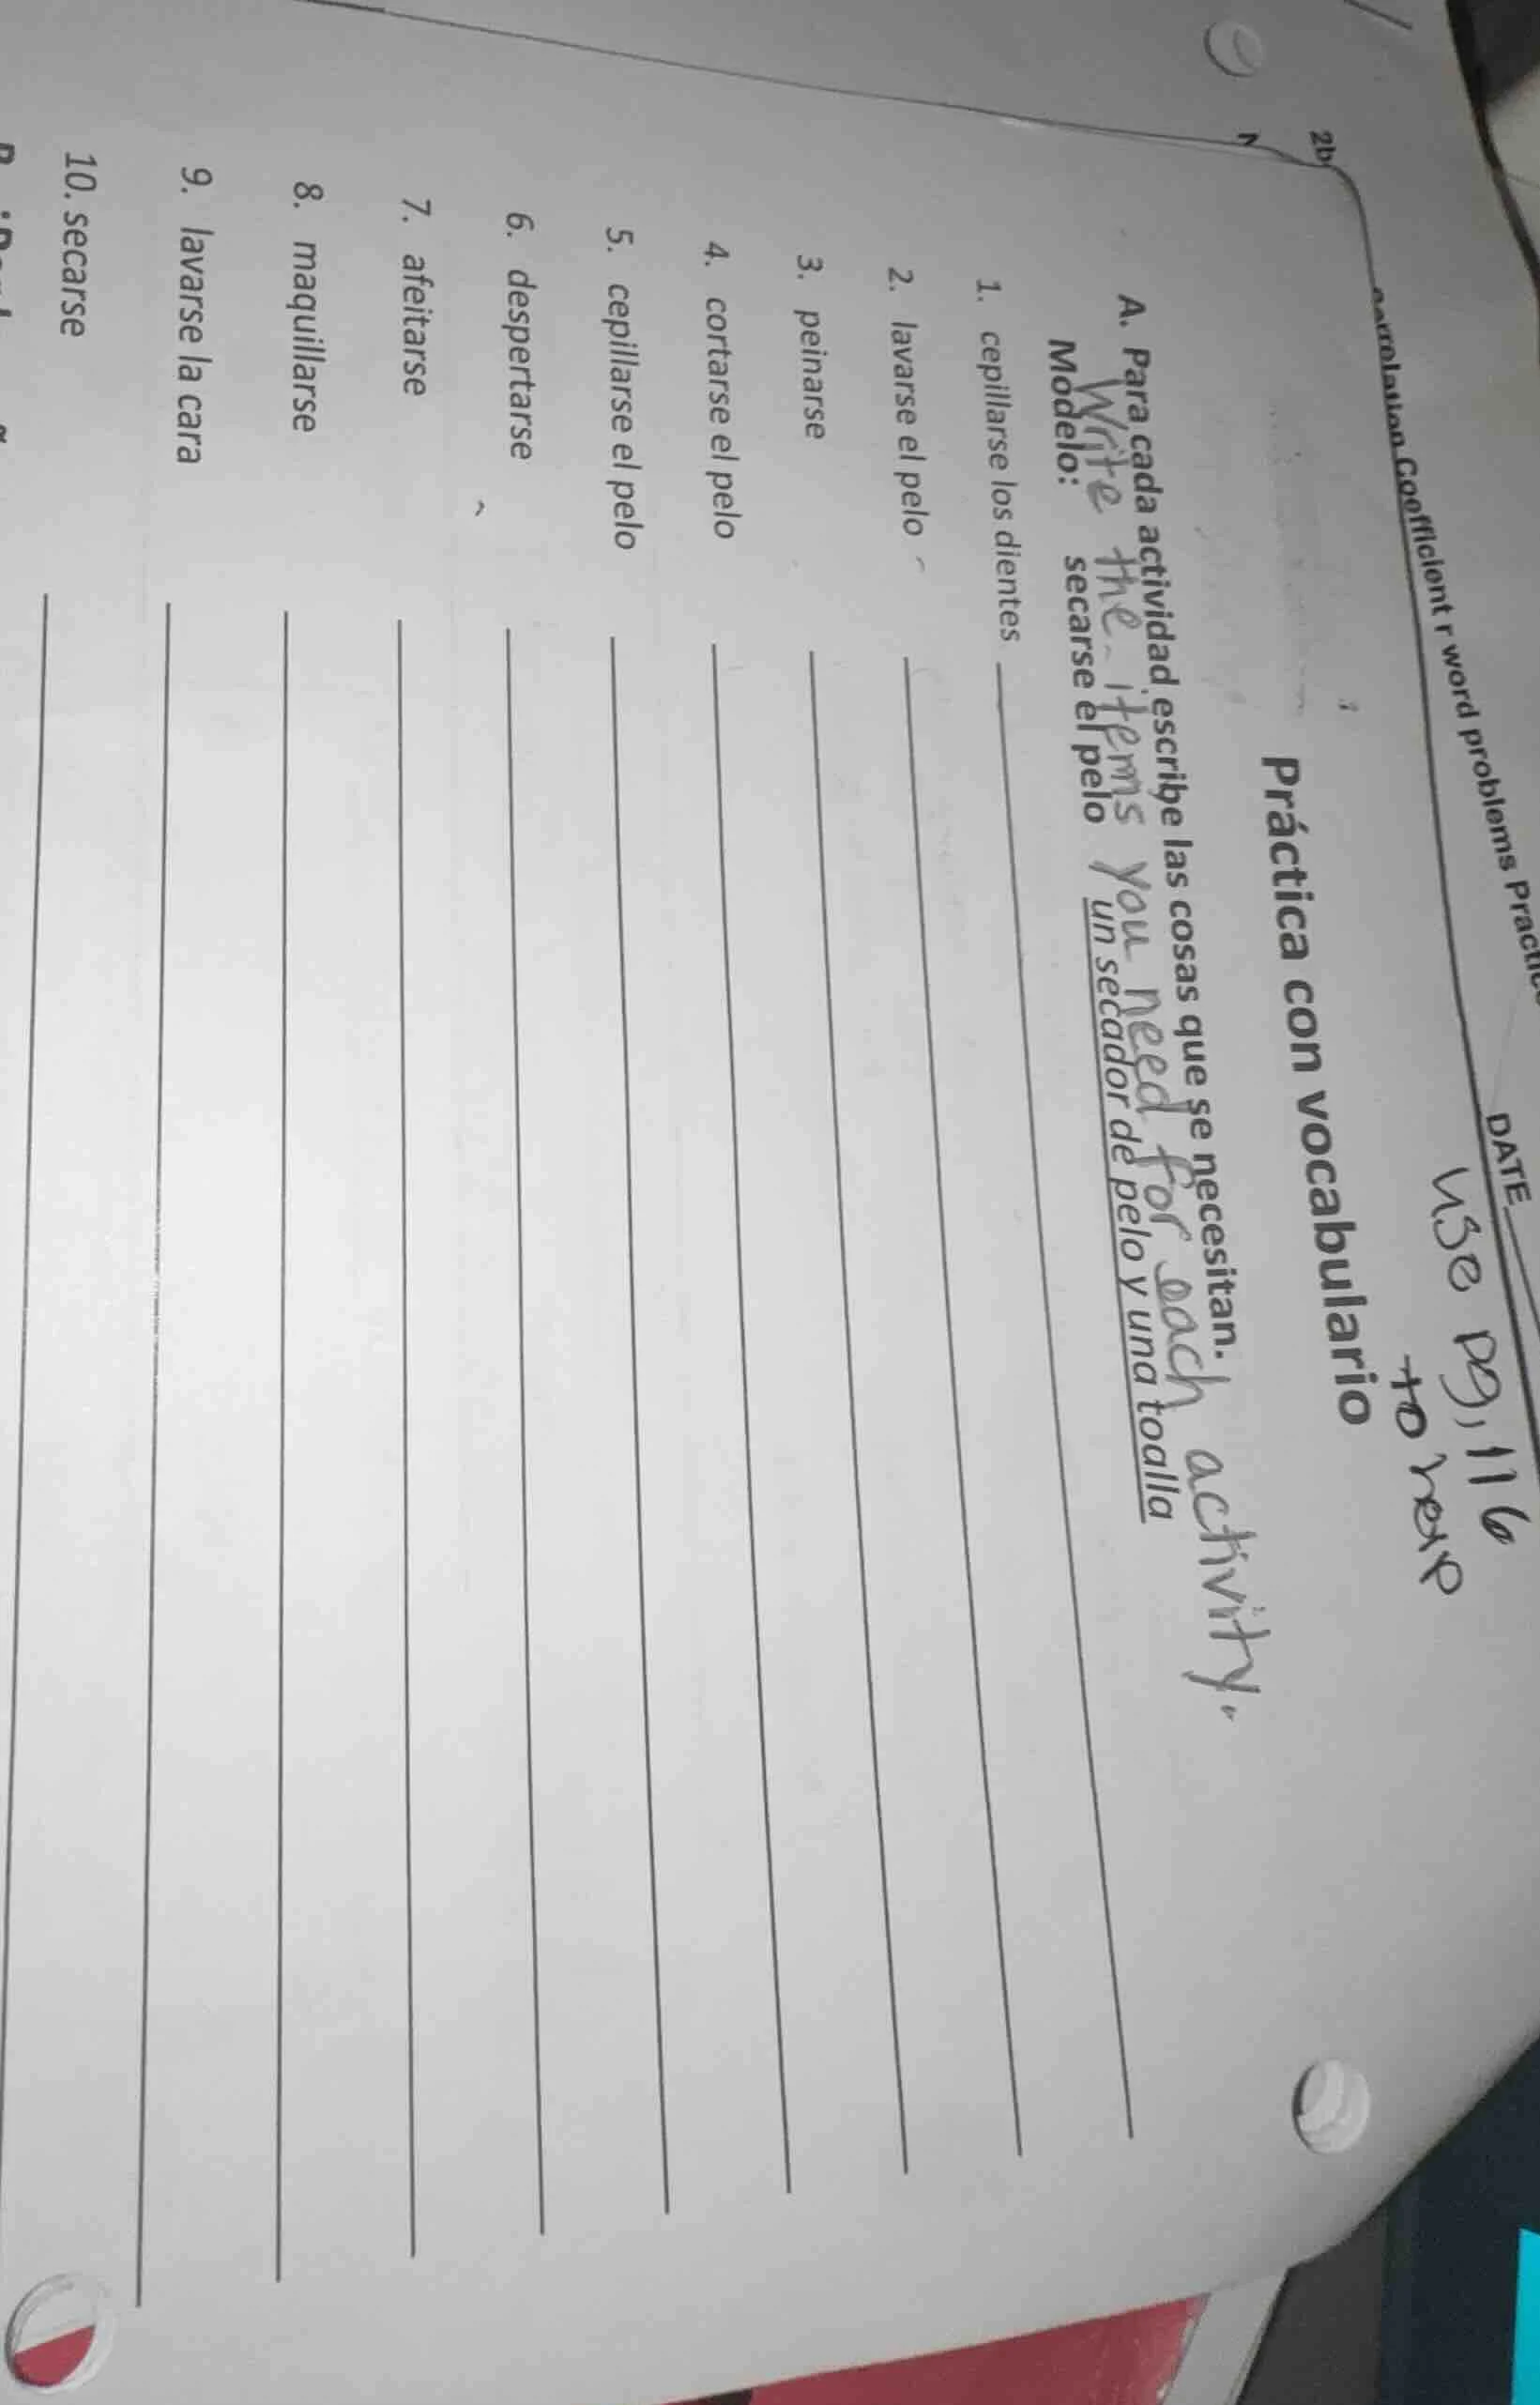 Correlation Coefficient r word problems Practice
DATE
use pg, 116
to help
2b
Práctica con vocabulario
A. Para cada actividad escribe las cosas que se necesitan.
Write the items you need for each activity.
Modelo: secarse el pelo un secador de pelo y una toalla
1. cepillarse los dientes
2. lavarse el pelo
3. peinarse
4. cortarse el pelo
5. cepillarse el pelo
6. despertarse
7. afeitarse
8. maquillarse
9. lavarse la cara
10. secarse